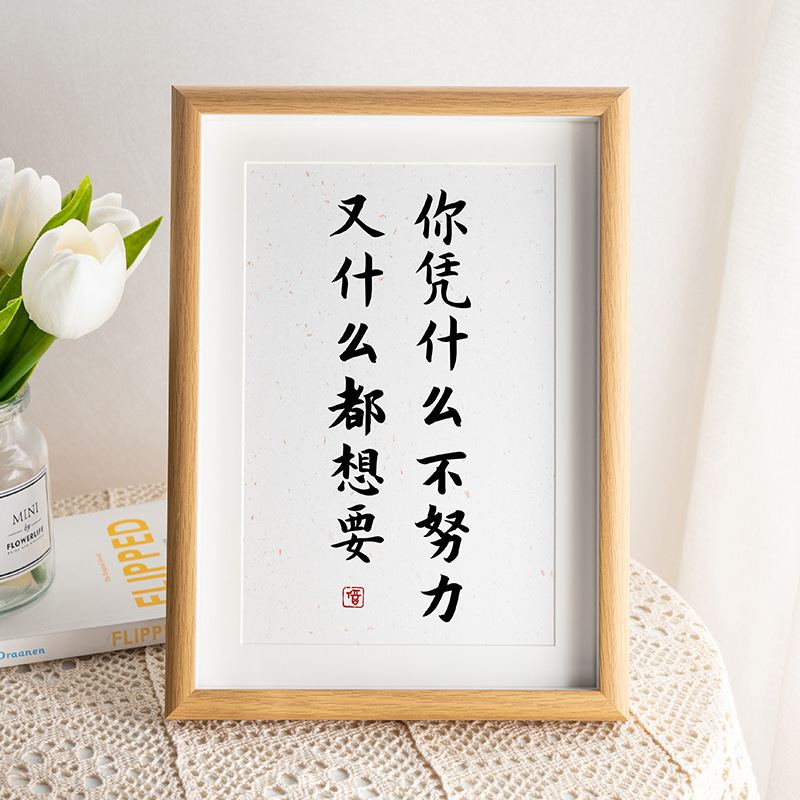 你凭什么不努力
又什么都想要
MINI
by
FLOWERLIFE
FLIPPED
FLIPP
Draanen